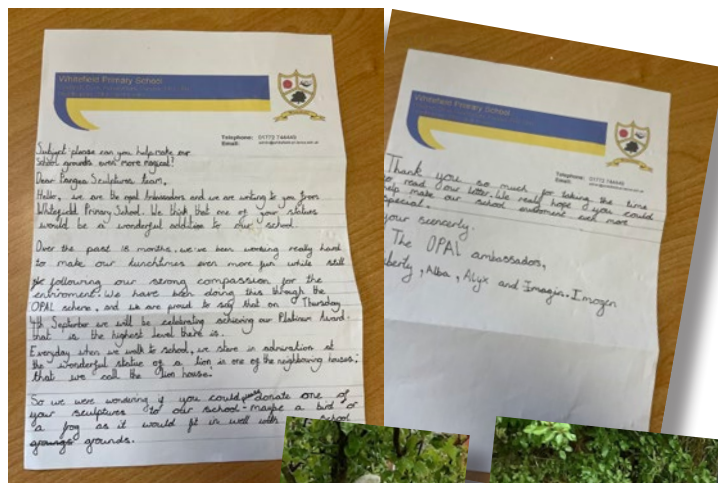 Whitefield Primary School
Telephone: 01772 744449
Email:
Subject: please can you help make our
school grounds even more magical?
Dear Pangea Sculptures team,
Hello, we are the opal Ambassadors and we are writing to you from
Whitefield Primary School. We think that one of your statues
would be a wonderful addition to our school.
Over the past 18 months, we've been working really hard
to make our lunchtimes even more fun while still
following our strong compassion for the
enviroment. We have been doing this through the
OPAL scheme, and we are proud to say that on Thursday
4th September we will be celebrating achieving our Platinum Award -
that is the highest level there is.
Everyday when we walk to school, we stare in admiration at
the wonderful statue of a lion in one of the neighbouring houses;
that we call the lion house.
So we were wondering if you could donate one of
your sculptures to our school - maybe a bird or
a frog as it would fit in well with school
grounds.
Whitefield Primary School
Telephone: 01772 744449
Email:
Thank you so much for taking the time
to read our letter. We really hope you could
help make our school enviroment even more
special.
your sincerly,
The OPAL ambassadors,
Liberty, Alba, Alyx and Imogen